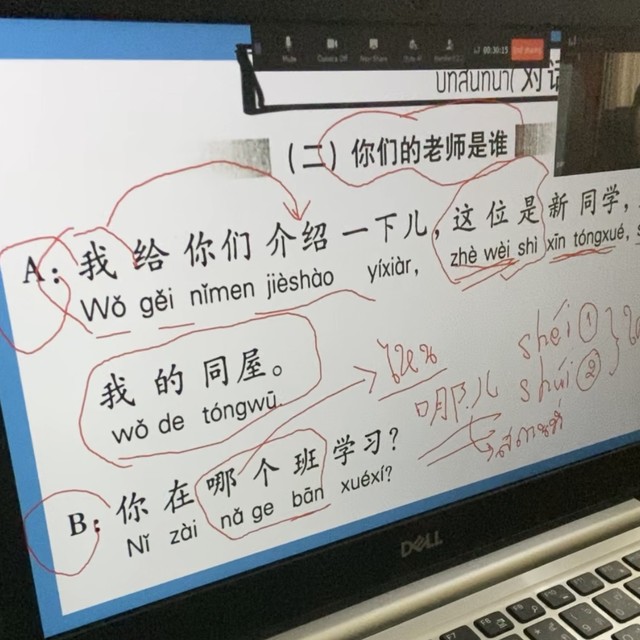 Mute
00:30:15
บทสนทนา( 对话
(二) 你们的老师是谁
A: 我 给 你们 介绍 一下儿, 这 位 是 新 同学,
Wǒ gěi nǐmen jièshào yíxiàr, zhè wèi shì xīn tóngxué,
我 的 同屋。
wǒ de tóngwū.
ไหน
shéi ①
shúi ②
哪儿
สถานที่
B: 你 在 哪 个 班 学习?
Nǐ zài nǎ ge bān xuéxí?
DELL